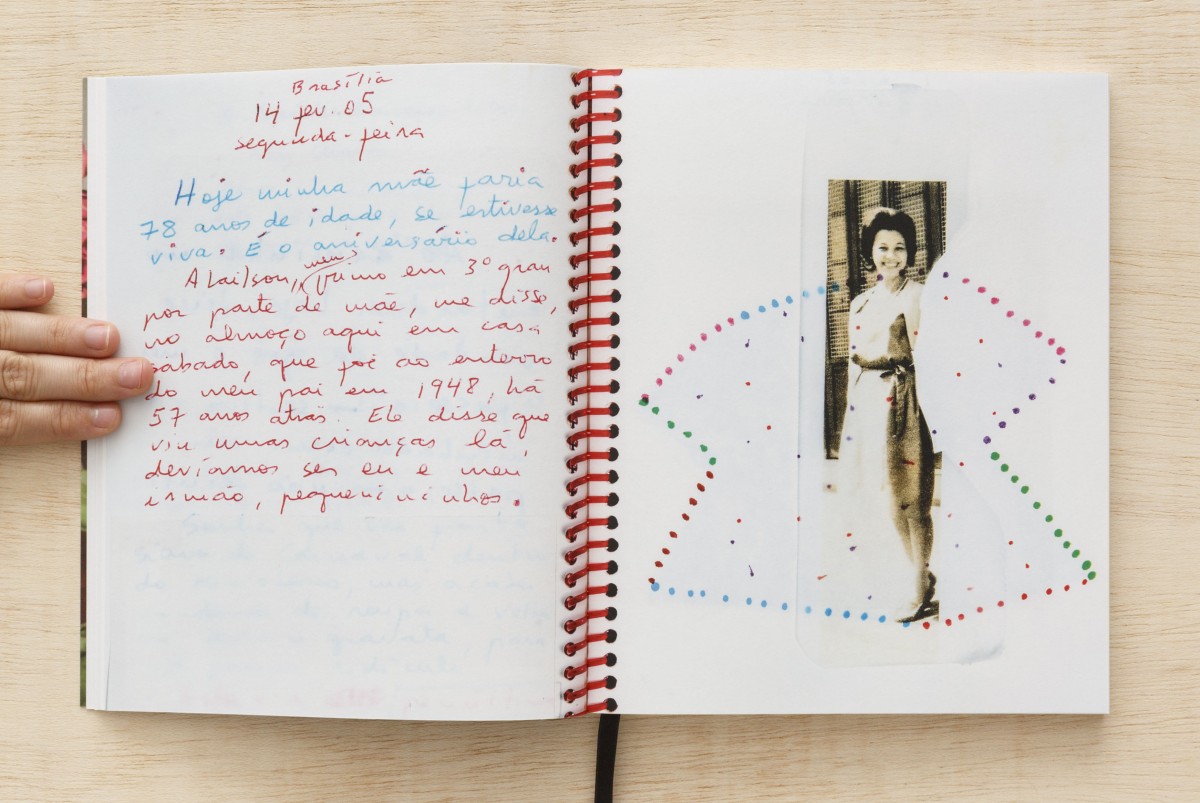 Brasília
14 fev. 05
segunda-feira
Hoje minha mãe faria
78 anos de idade, se estivesse
viva. É o aniversário dela.
Alailson, meu primo em 3º grau
por parte de mãe, me disse,
no almoço aqui em casa
sábado, que foi ao enterro
do meu pai em 1948, há
57 anos atrás. Ele disse que
viu umas crianças lá,
devíamos ser eu e meu
irmão, pequenininhos.